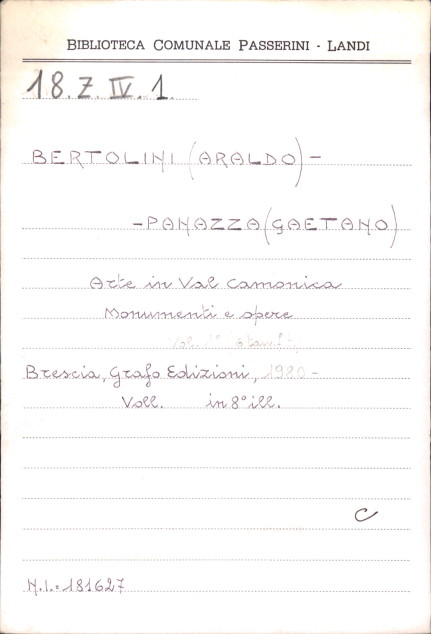 BIBLIOTECA COMUNALE PASSERINI - LANDI
18.Z.IV.1.
BERTOLINI (ARALDO) -
- PANAZZA (GAETANO)
Arte in Val Camonica
Monumenti e opere
Vol. 1°
Brescia, Grafo Edizioni, 1980 -
Voll. in 8° ill.
C
N.I.= 181627